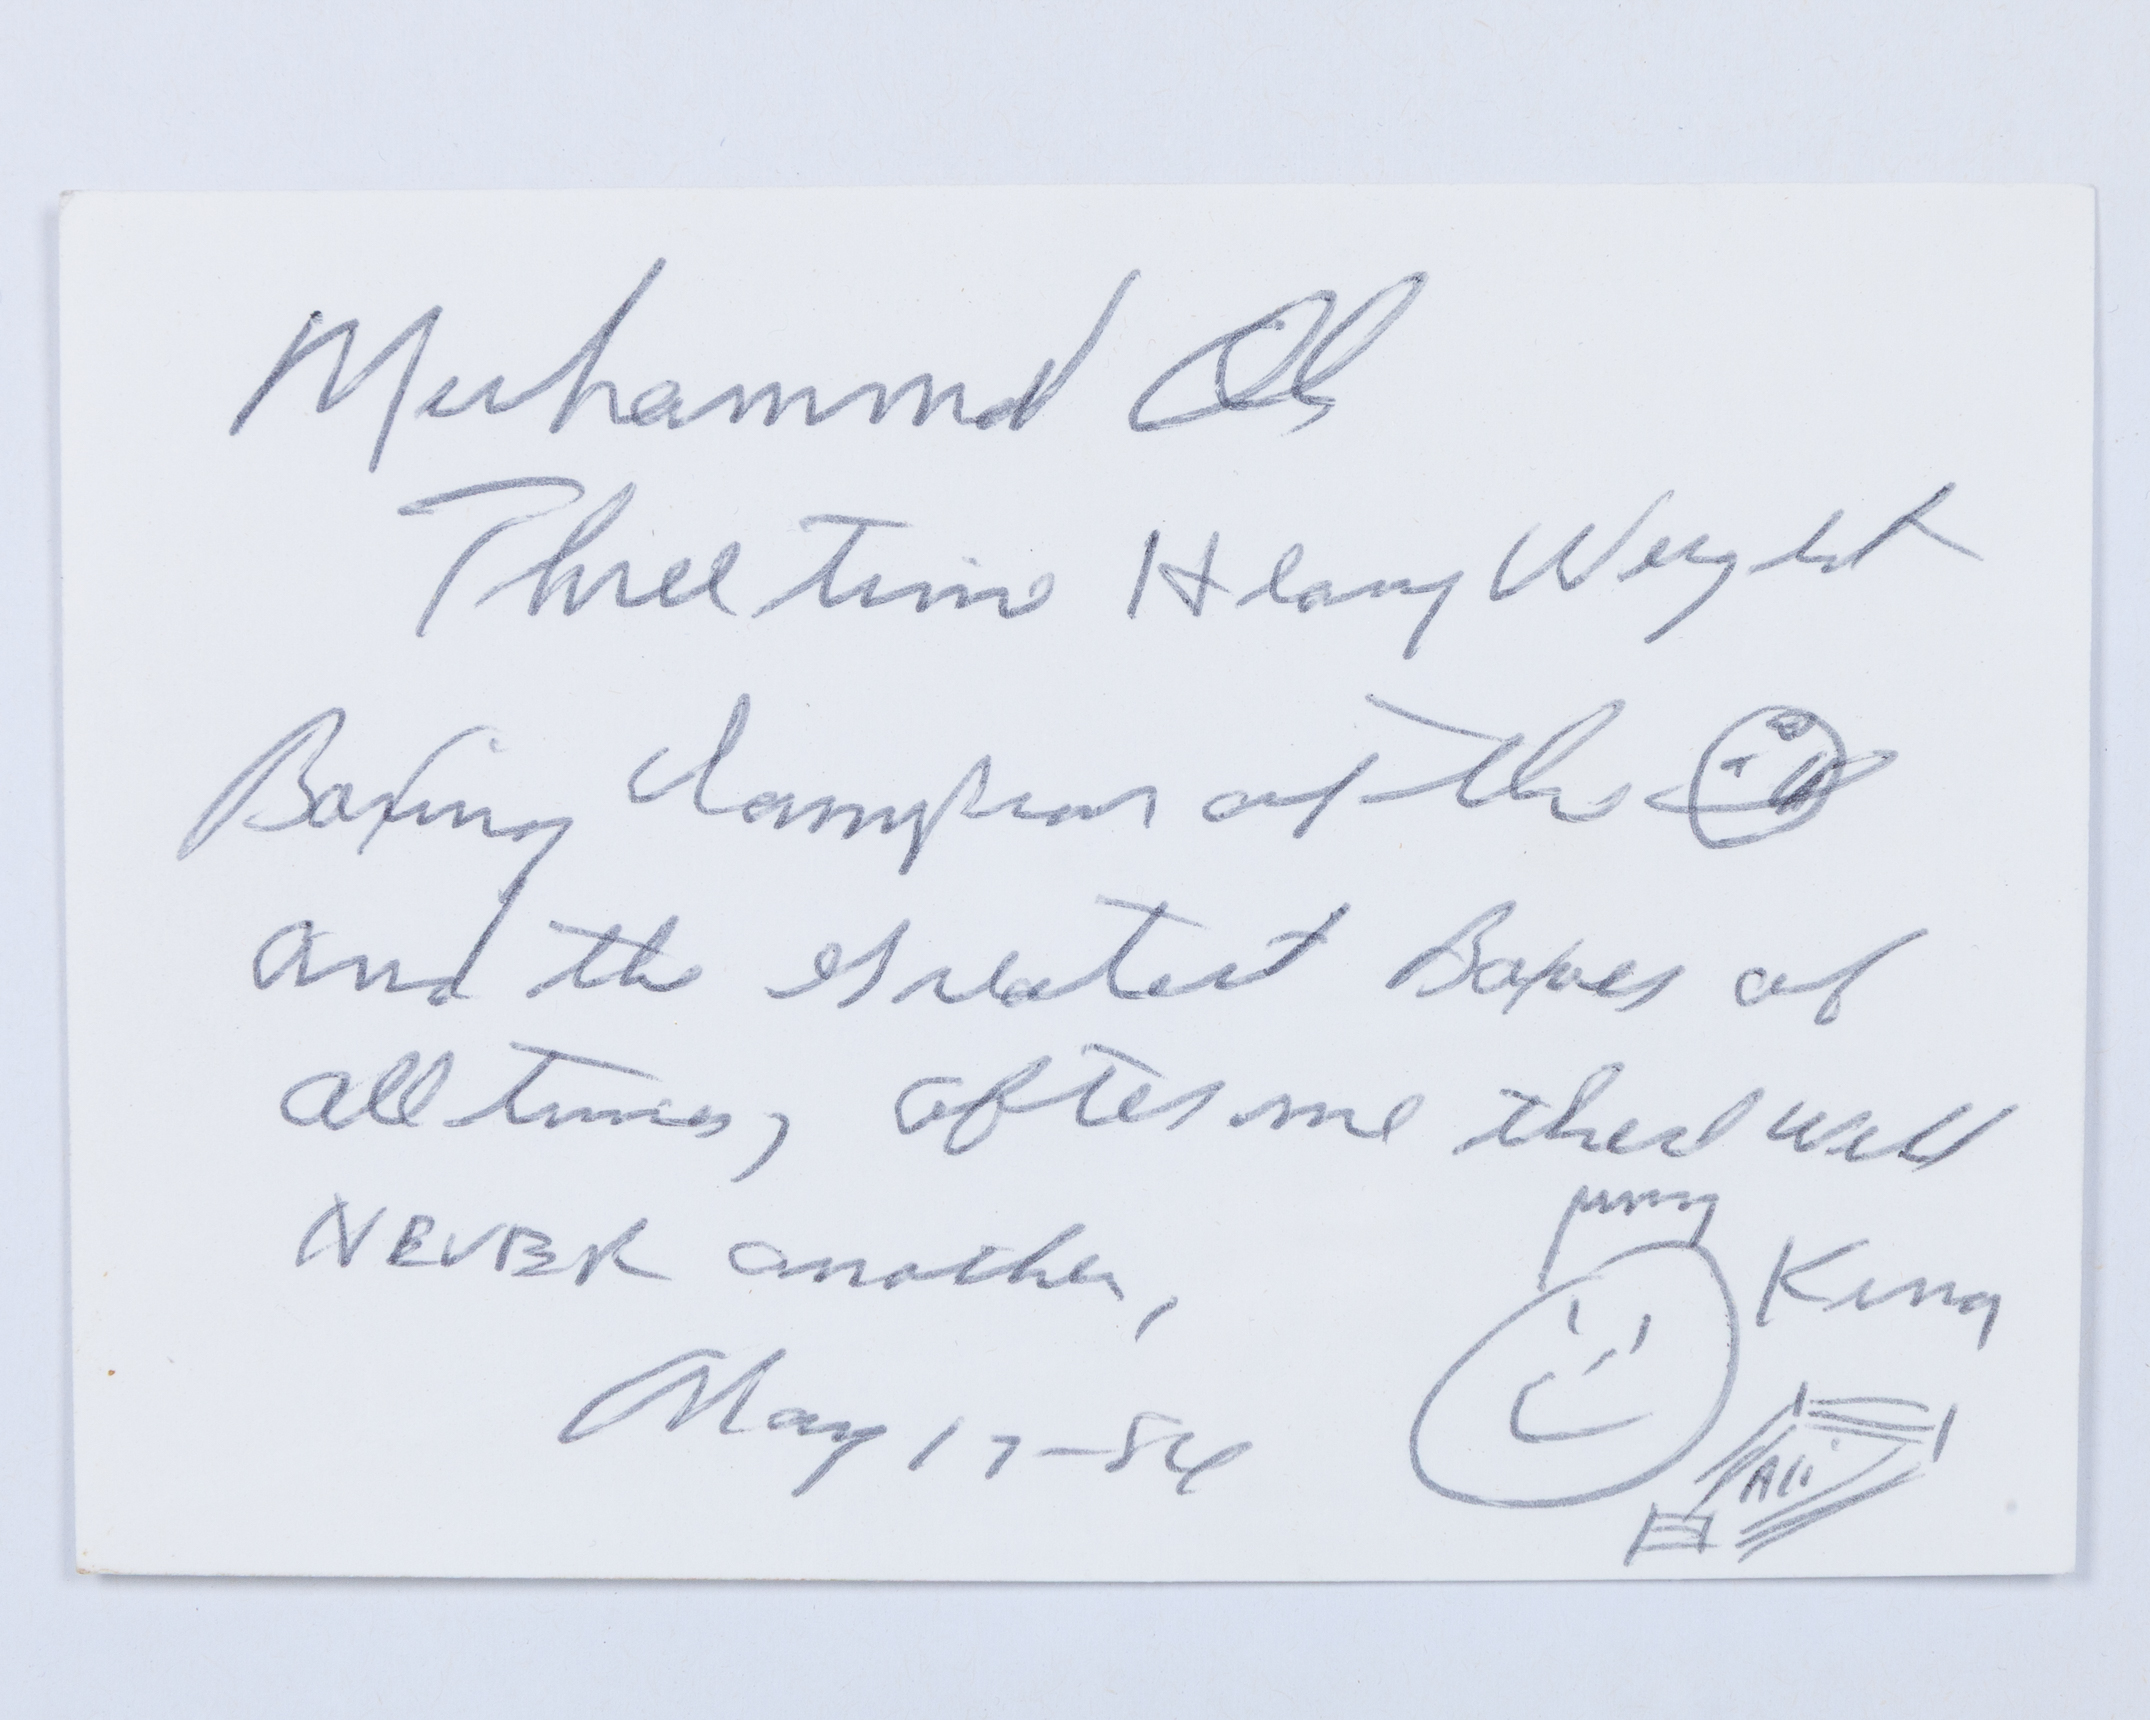 Muhammad Ali
Three time Heavy Weight
Boxing Champion of the
and the greatest Boxer of
all times, after me there will
NEVER another,
King
May 17-84
Ali